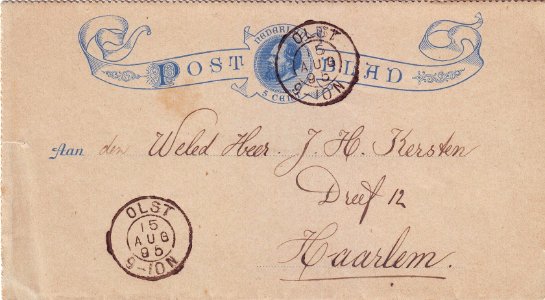 NEDERLAND
POSTBLAD
5 CENT
OLST
15
AUG
95
9-10N
Aan den Weled Heer J. H. Kersten
Dreef 12
Haarlem.
OLST
15
AUG
95
9-10N